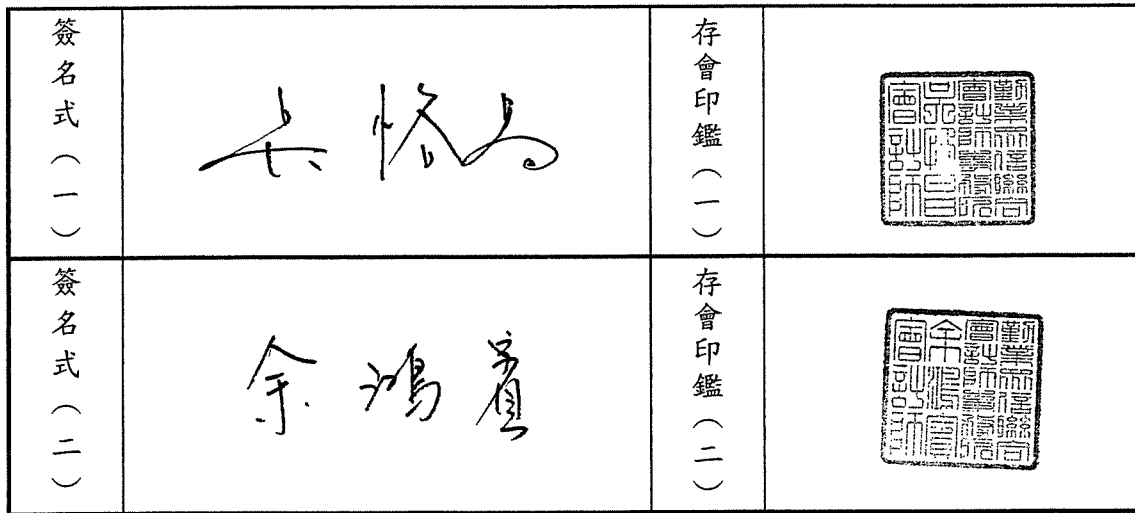 簽名式（一）
存會印鑑（一）
勤業眾信聯合
會計師事務所
會計師
簽名式（二）
余鴻賓
存會印鑑（二）
勤業眾信聯合
會計師事務所
余鴻賓
會計師